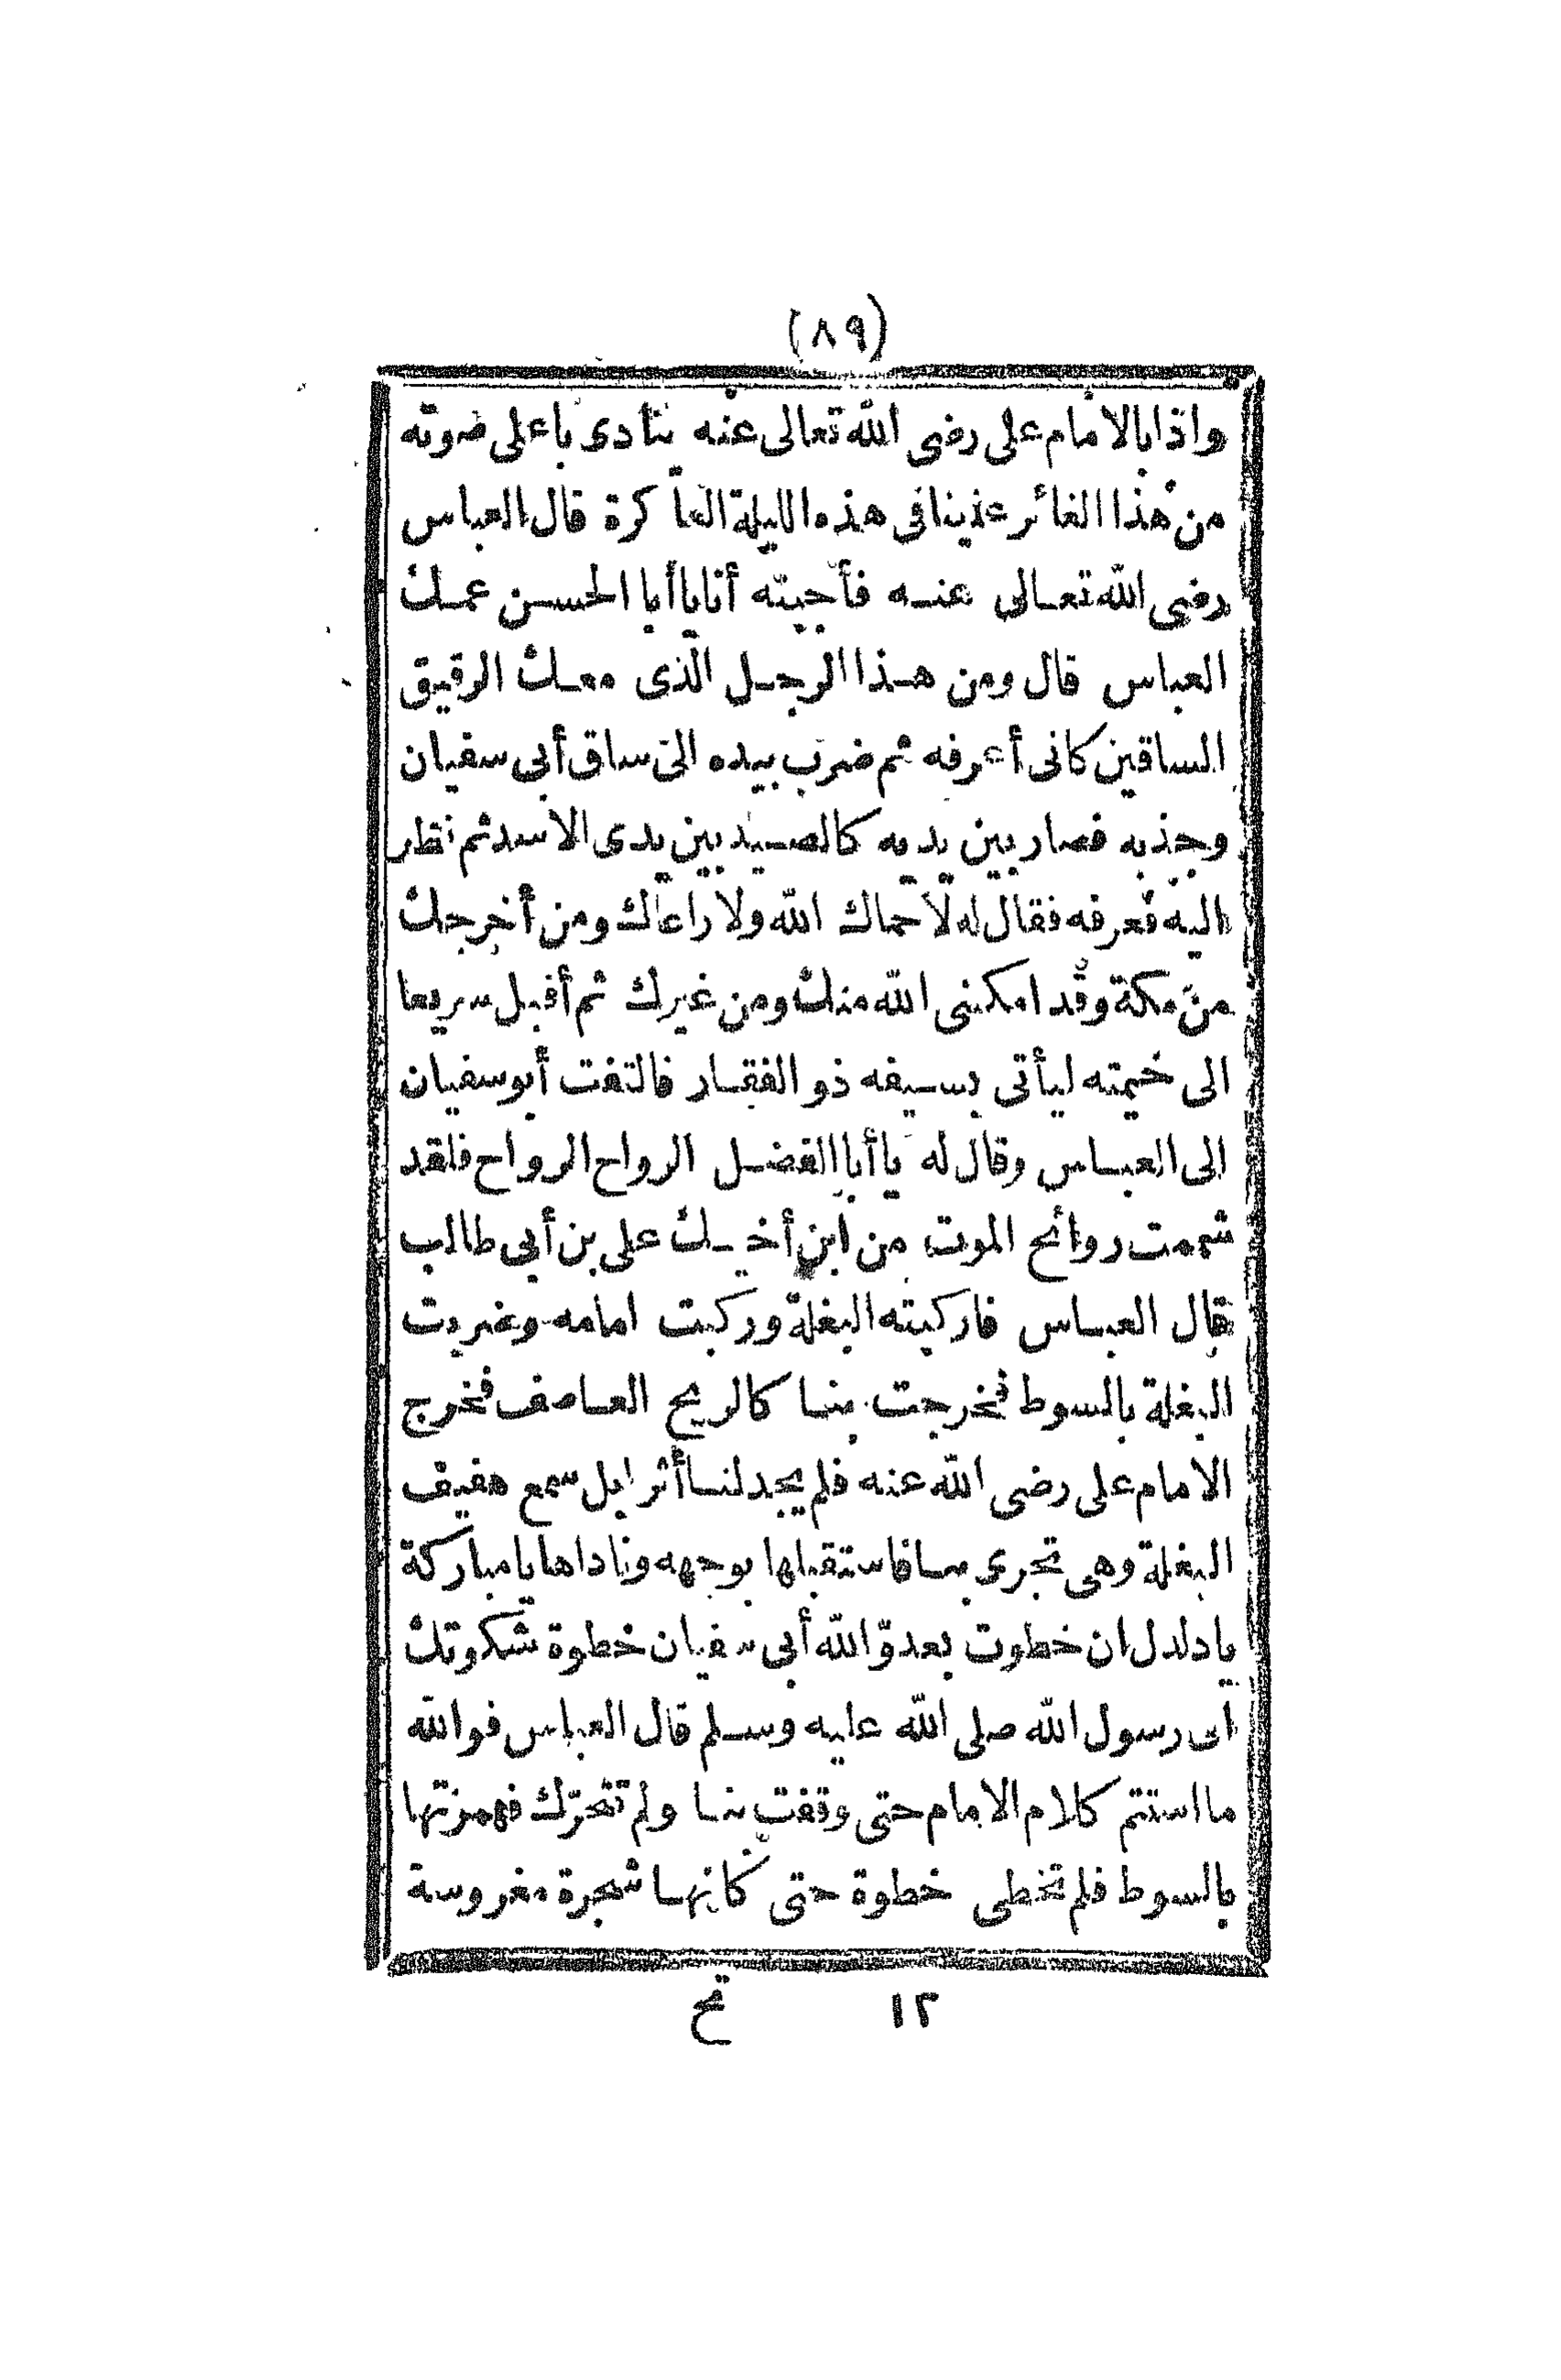 (٨٩)
واذا بالامام على رضى الله تعالى عنه ينادى باعلى صوته
من هذا الغائر علينا فى هذه الليلة العاكرة قال العباس
رضى الله تعالى عنه فأجبته أنا يا أبا الحسن عمك
العباس قال ومن هذا الرجل الذى معك الرقيق
الساقين كانى أعرفه ثم ضرب بيده الى ساق أبى سفيان
وجذبه فصار بين يديه كالصيد بين يدى الاسد ثم نظر
اليه فعرفه فقال له لا حماك الله ولا راعاك ومن أخرجك
من مكة وقد امكننى الله منك ومن غيرك ثم أقبل سريعا
الى خيمته ليأتى بسيفه ذو الفقار فالتفت أبو سفيان
الى العباس وقال له يا أبا الفضل الرواح الرواح فلقد
شممت روائح الموت من ابن أخيك على بن أبى طالب
قال العباس فاركبته البغلة وركبت امامه وضربت
البغلة بالسوط فخرجت بنا كالريح العاصف فخرج
الامام على رضى الله عنه فلم يجد لنا أثرا بل سمع هفيف
البغلة وهى تجرى بنا فاستقبلها بوجهه وناداها يا مباركة
يا دلدل ان خطوت بعدوّ الله أبى سفيان خطوة شكوتك
الى رسول الله صلى الله عليه وسلم قال العباس فوالله
ما استتم كلام الامام حتى وقفت بنا ولم تتحرّك فهمزتها
بالسوط فلم تخطى خطوة حتى كانها شجرة مغروسة
١٢ تح